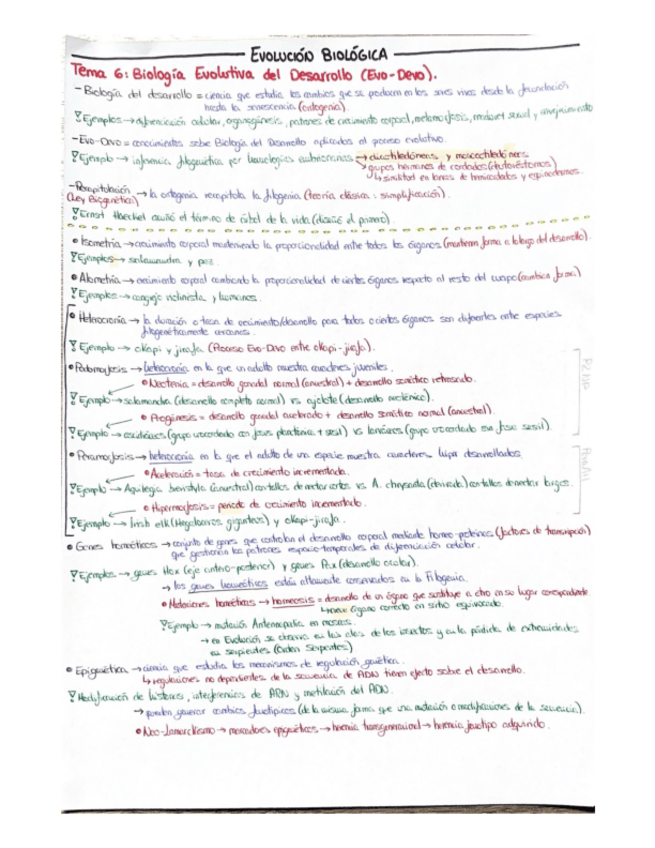 EVOLUCIÓN BIOLÓGICA
Tema 6: Biología Evolutiva del Desarrollo (Evo-Devo).
- Biología del desarrollo = ciencia que estudia los cambios que se producen en los seres vivos desde la fecundación
hasta la senescencia (ontogenia)
Ejemplos → diferenciación celular, organogénesis, patrones de crecimiento corporal, metamorfosis, madurez sexual y envejecimiento
- Evo-Devo = conocimientos sobre Biología del Desarrollo aplicados al proceso evolutivo.
Ejemplo → inferencia filogenética por homologías embrionarias → dicotiledóneas y monocotiledóneas
→ grupos hermanos de cordados (deuteróstomos)
↳ similitud en larvas de hemicordados y equinodermos.
- Recapitulación → la ontogenia recapitula la filogenia (teoría clásica: simplificación).
(Ley Biogenética)
Ernst Haeckel acuñó el término de árbol de la vida (diseñó el primero).
• Isometría → crecimiento corporal manteniendo la proporcionalidad entre todos los órganos (mantienen forma a lo largo del desarrollo).
Ejemplos → salamandra y pez.
• Alometría → crecimiento corporal cambiando la proporcionalidad de ciertos órganos respecto al resto del cuerpo (cambia forma)
Ejemplos → cangrejo violinista y humanos.
• Heterocronía → la duración o tasa de crecimiento/desarrollo para todos o ciertos órganos son diferentes entre especies
filogenéticamente cercanas.
Ejemplo → okapi y jirafa (Proceso Evo-Devo entre okapi-jirafa).
• Pedomorfosis → heterocronía en la que un adulto muestra caracteres juveniles.
• Neotenia = desarrollo gonadal normal (ancestral) + desarrollo somático retrasado.
Ejemplo → salamandra (desarrollo completo normal) vs ajolote (desarrollo neoténico).
• Progénesis = desarrollo gonadal acelerado + desarrollo somático normal (ancestral).
Ejemplo → ascidiáceos (grupo urocordado con fases planctónica + sésil) vs larváceos (grupo urocordado sin fase sésil).
• Peramorfosis → heterocronía en la que el adulto de una especie muestra caracteres desarrollados.
• Aceleración = tasa de crecimiento incrementada.
Ejemplo → Aquilegia (ancestral) con tallos de néctar cortos vs A. chrysantha (derivada) con tallos de néctar largos.
• Hipermorfosis = periodo de crecimiento incrementado.
Ejemplo → Irish elk (Megaloceros giganteus) y okapi-jirafa.
• Genes homeóticos → conjunto de genes que controlan el desarrollo corporal mediante homeo-proteínas (factores de transcripción)
que gestionan los patrones espacio-temporales de diferenciación celular.
Ejemplos → genes Hox (eje antero-posterior) y genes Pax (desarrollo ocular).
→ los genes homeóticos están altamente conservados en la Filogenia.
• Mutaciones homeóticas → homeosis = desarrollo de un órgano que sustituye a otro en su lugar correspondiente
↳ crear órgano correcto en sitio equivocado.
Ejemplo → mutación Antennapedia en moscas.
→ en Evolución se observa en las alas de los insectos y en la pérdida de extremidades
en serpientes (Orden Serpentes)
• Epigenética → ciencia que estudia los mecanismos de regulación genética.
↳ regulaciones no dependientes de la secuencia de ADN tienen efecto sobre el desarrollo.
Modificación de histonas, interferencias de ARN y metilación del ADN.
→ pueden generar cambios fenotípicos (de la misma forma que una mutación o modificaciones de la secuencia).
• Neo-Lamarckismo → marcadores epigenéticos → herencia transgeneracional → herencia fenotipo adquirido.